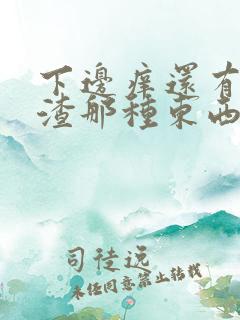 下邊痒還有
渣那種東西
司徒遠
未经同意禁止转载